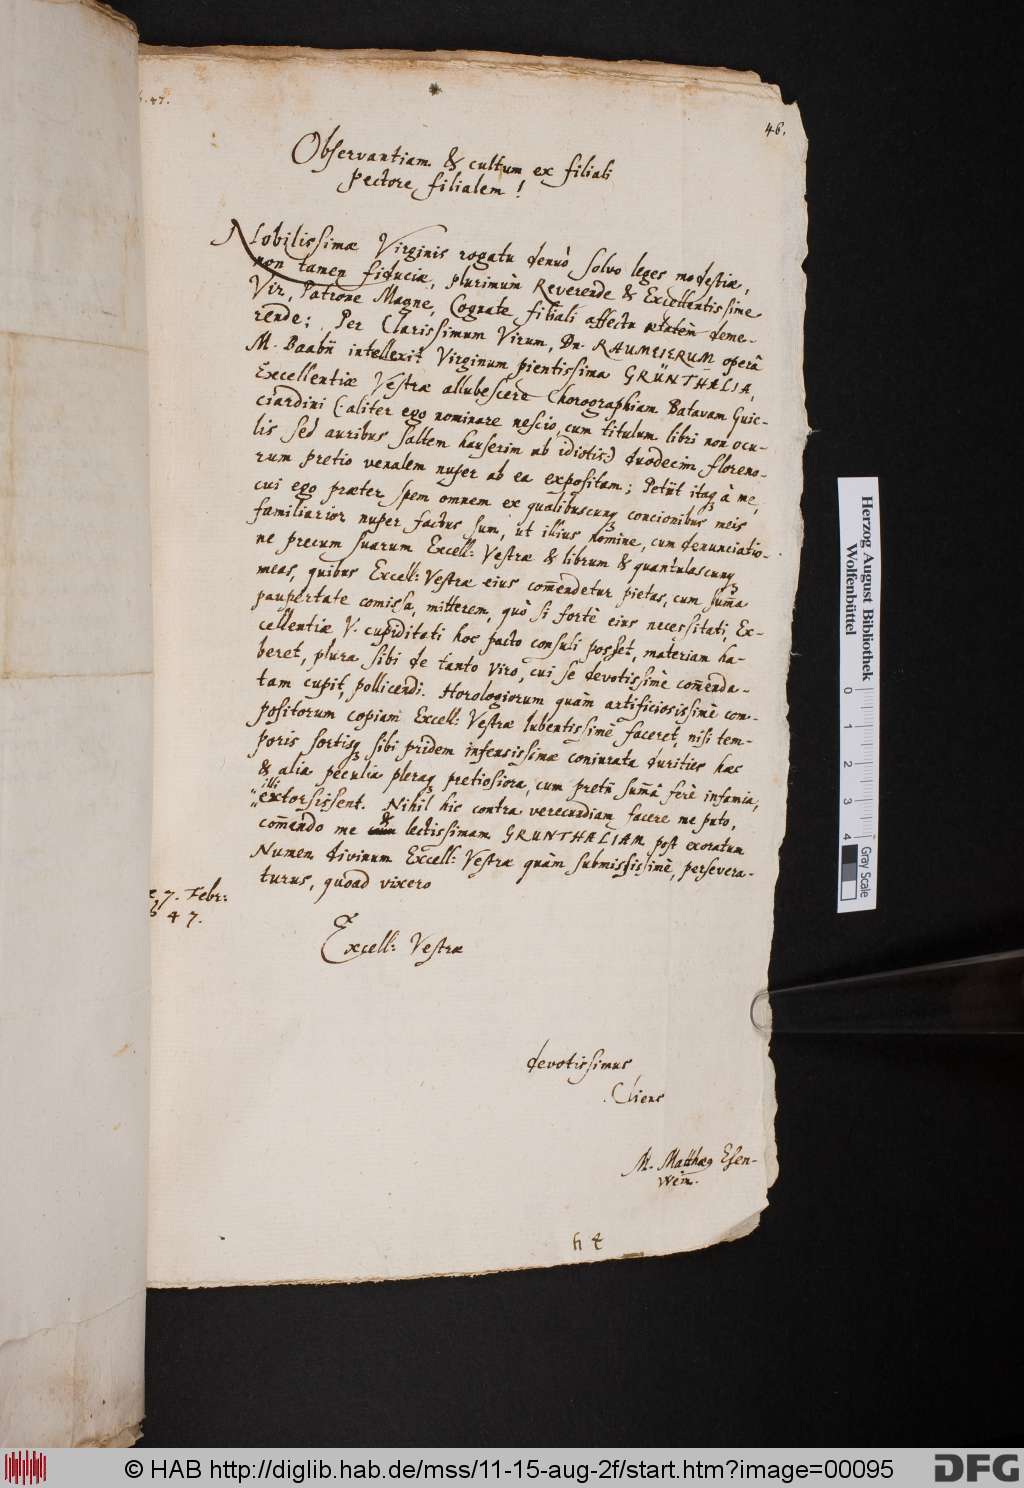 46.
47.
Observantiam & cultum ex filiali
pectore filialem!
Nobilissimæ Virginis rogatu denuò solvo leges modestiæ,
non tamen fiduciæ, plurimùm Reverende & Excellentissime
Vir, Patrone Magne, Cognate filiali affectu ætatem deme-
rende: Per Clarissimum Virum, Dn. RAUMEIERUM operâ
M. Baabii intellexit Virginum pientissima GRÜNTHALIA,
Excellentiæ Vestræ allubescere Chorographiam Batavam Guic-
ciardini (: aliter ego nominare nescio, cum titulum libri non ocu-
lis sed auribus saltem hauserim ab idiotis:) duodecim floreno-
rum pretio venalem nuper ab ea expositam; Petiit itaq à me,
cui ego præter spem omnem ex qualibuscunq concionibus meis
familiarior nuper factus sum, ut illius nomine, cum denunciatio-
ne precum suarum Excell: Vestræ & librum & quantulascunq
meas, quibus Excell: Vestræ eius com̄endetur pietas, cum sum̄a
paupertate comissa, mitterem, quò si fortè eius necessitati, Ex-
cellentiæ V. cupiditati hoc pacto consuli posset, materiam ha-
beret, plura sibi de tanto viro, cui se devotissimè com̄enda-
tam cupit, pollicendi. Horologiorum quàm artificiosissimè com-
positorum copiam Excell: Vestræ lubentissimè faceret, nisi tem-
poris sortisq sibi pridem infensissimæ coniurata durities hæc
& alia peculia pleraq pretiosiora, cum pretii sum̄â ferè infamia,
illi
extorsissent. Nihil hic contra verecundiam facere me puto,
com̄endo me & lectissimam GRUNTHALIAM post exoratum
Numen divinum Excell: Vestræ quàm submississimè, persevera-
turus, quoad vixero
7. Febr:
47.
Excell: Vestræ
devotissimus
Cliens
M. Matthæ9 Esen-
wein.
Herzog August Bibliothek
Wolfenbüttel
0 1 2 3 4
Gray Scale
© HAB http://diglib.hab.de/mss/11-15-aug-2f/start.htm?image=00095
DFG